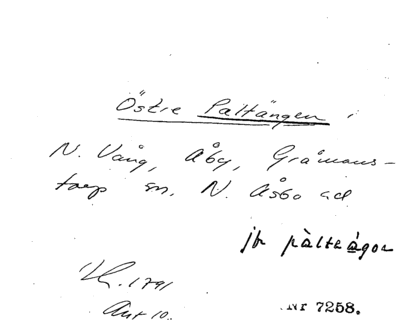 Östre Paltängen
N. Vång, Åby, Gråmans-
torp sn. N. Åsbo hd
jfr pàlteågor
1791
Akt 10.
Nr 7258.